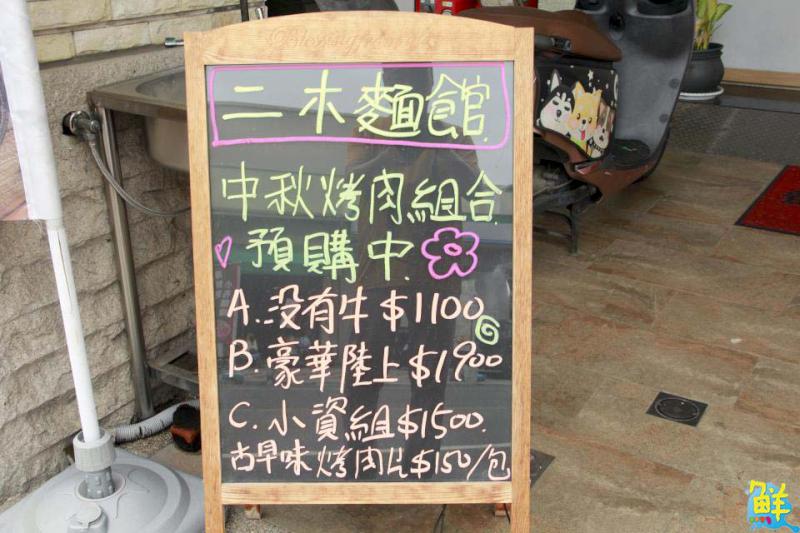 二木麵館
中秋烤肉組合
預購中
A.没有牛$1100
B.豪華陸上$1900
C.小資組$1500.
古早味烤肉片$150/包
鮮